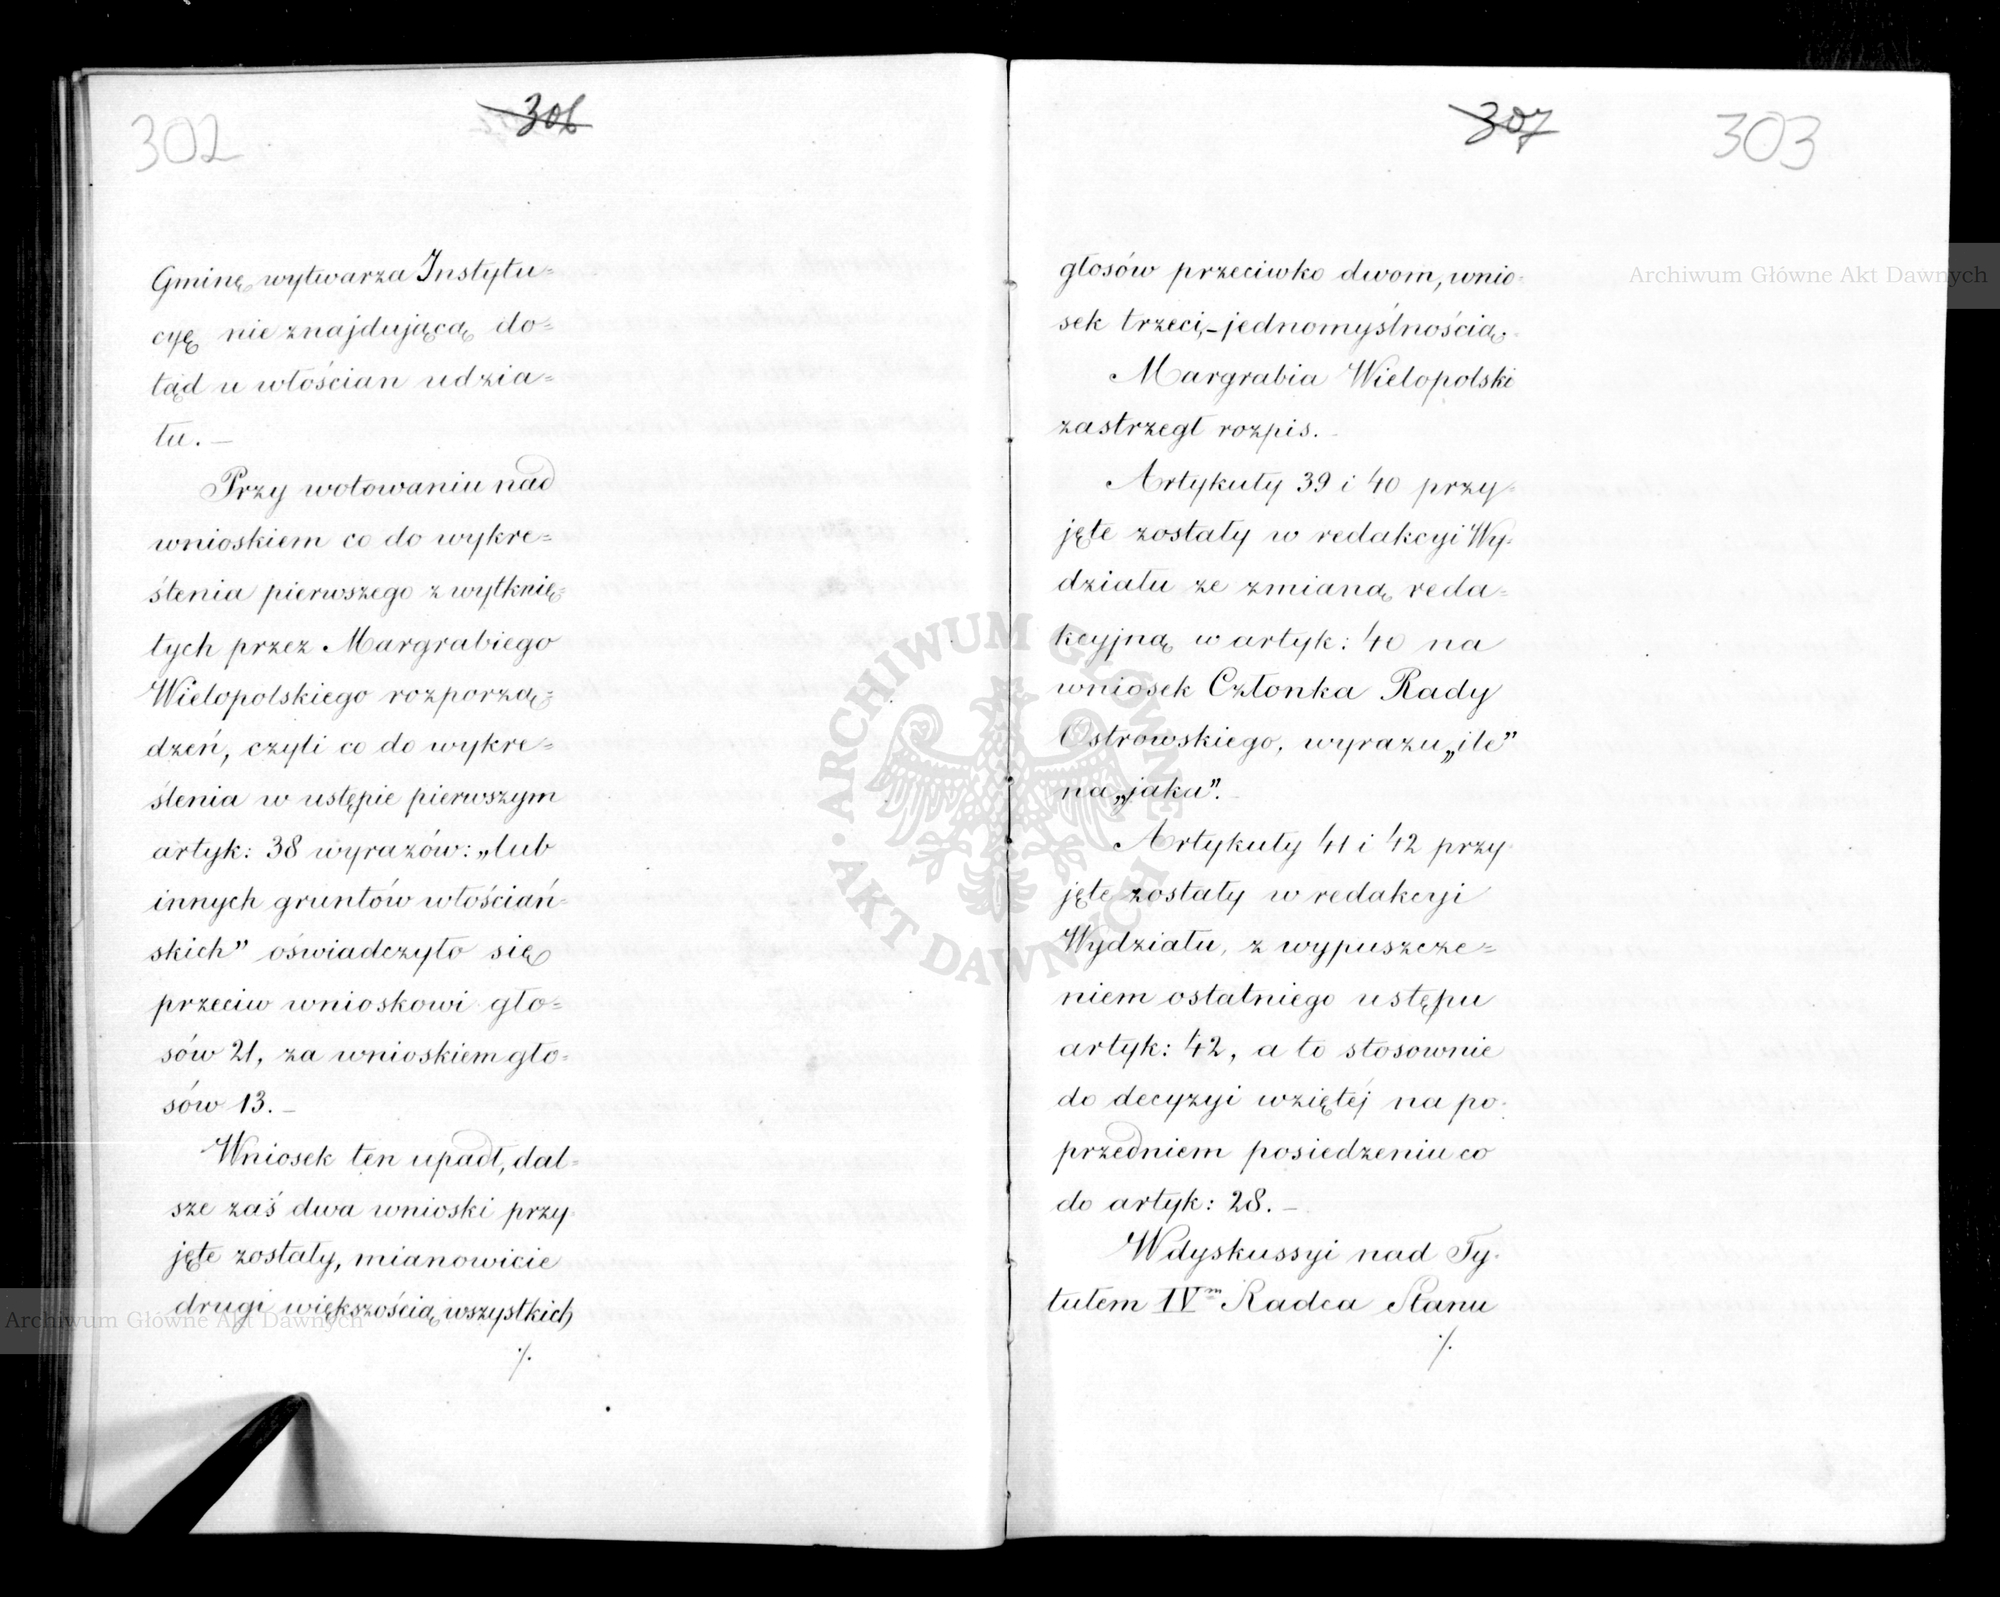 302
306
Gminę, wytwarza Instytu=
cyę nie znajdującą do=
tąd u włościan udzia=
łu. —
Przy wotowaniu nad
wnioskiem co do wykre=
ślenia pierwszego z wytknię=
tych przez Margrabiego
Wielopolskiego rozporzą=
dzeń, czyli co do wykre=
ślenia w ustępie pierwszym
artyk: 38 wyrazów: „lub
innych gruntów włościań=
skich” oświadczyło się
przeciw wnioskowi gło=
sów 21, za wnioskiem gło=
sów 13. —
Wniosek ten upadł, dal=
sze zaś dwa wnioski przy=
jęte zostały, mianowicie
drugi większością wszystkich
·/.
307
303
głosów przeciwko dwom, wnio=
sek trzeci, – jednomyślnością.
Margrabia Wielopolski
zastrzegł rozpis. —
Artykuły 39 i 40 przy=
jęte zostały w redakcyi Wy=
działu ze zmianą reda=
kcyjną w artyk: 40 na
wniosek Członka Rady
Ostrowskiego, wyrazu „ile”
na „jaka”. —
Artykuły 41 i 42 przy=
jęte zostały w redakcyi
Wydziału, z wypuszcze=
niem ostatniego ustępu
artyk: 42, a to stosownie
do decyzyi wziętéj na po=
przedniem posiedzeniu co
do artyk: 28. —
W dyskussyi nad Ty=
tułem IVm Radca Stanu
·/.
Archiwum Główne Akt Dawnych
Archiwum Główne Akt Dawnych
ARCHIWUM GŁÓWNE AKT DAWNYCH